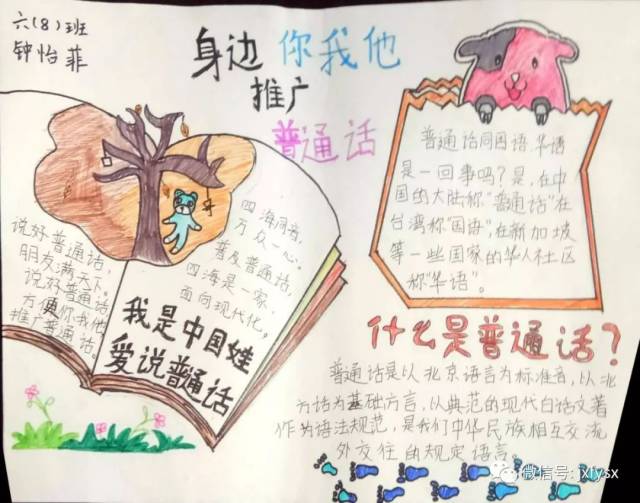 六(8)班
钟怡菲
身边你我他
推广
普通话
普通话同国语华语
是一回事吗?是,在中
国的大陆称"普通话"在
台湾称"国语",在新加坡
等一些国家的华人社区
称"华语"。
说好普通话,
朋友满天下。
说好普通话,
方便你我他
推广普通话。
四海同音,
万众一心。
普及普通话,
四海是一家。
面向现代化,
我是中国娃
爱说普通话
什么是普通话?
普通话是以北京语言为标准音,以北
方话为基础方言,从典范的现代白话文著
作为语法规范,是我们中华民族相互交流
外交往的规定语言。
微信号:jxfysx